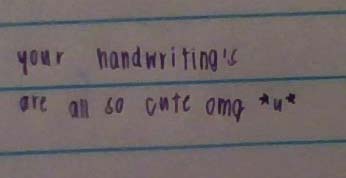 your handwriting's
are all so cute omg *u*